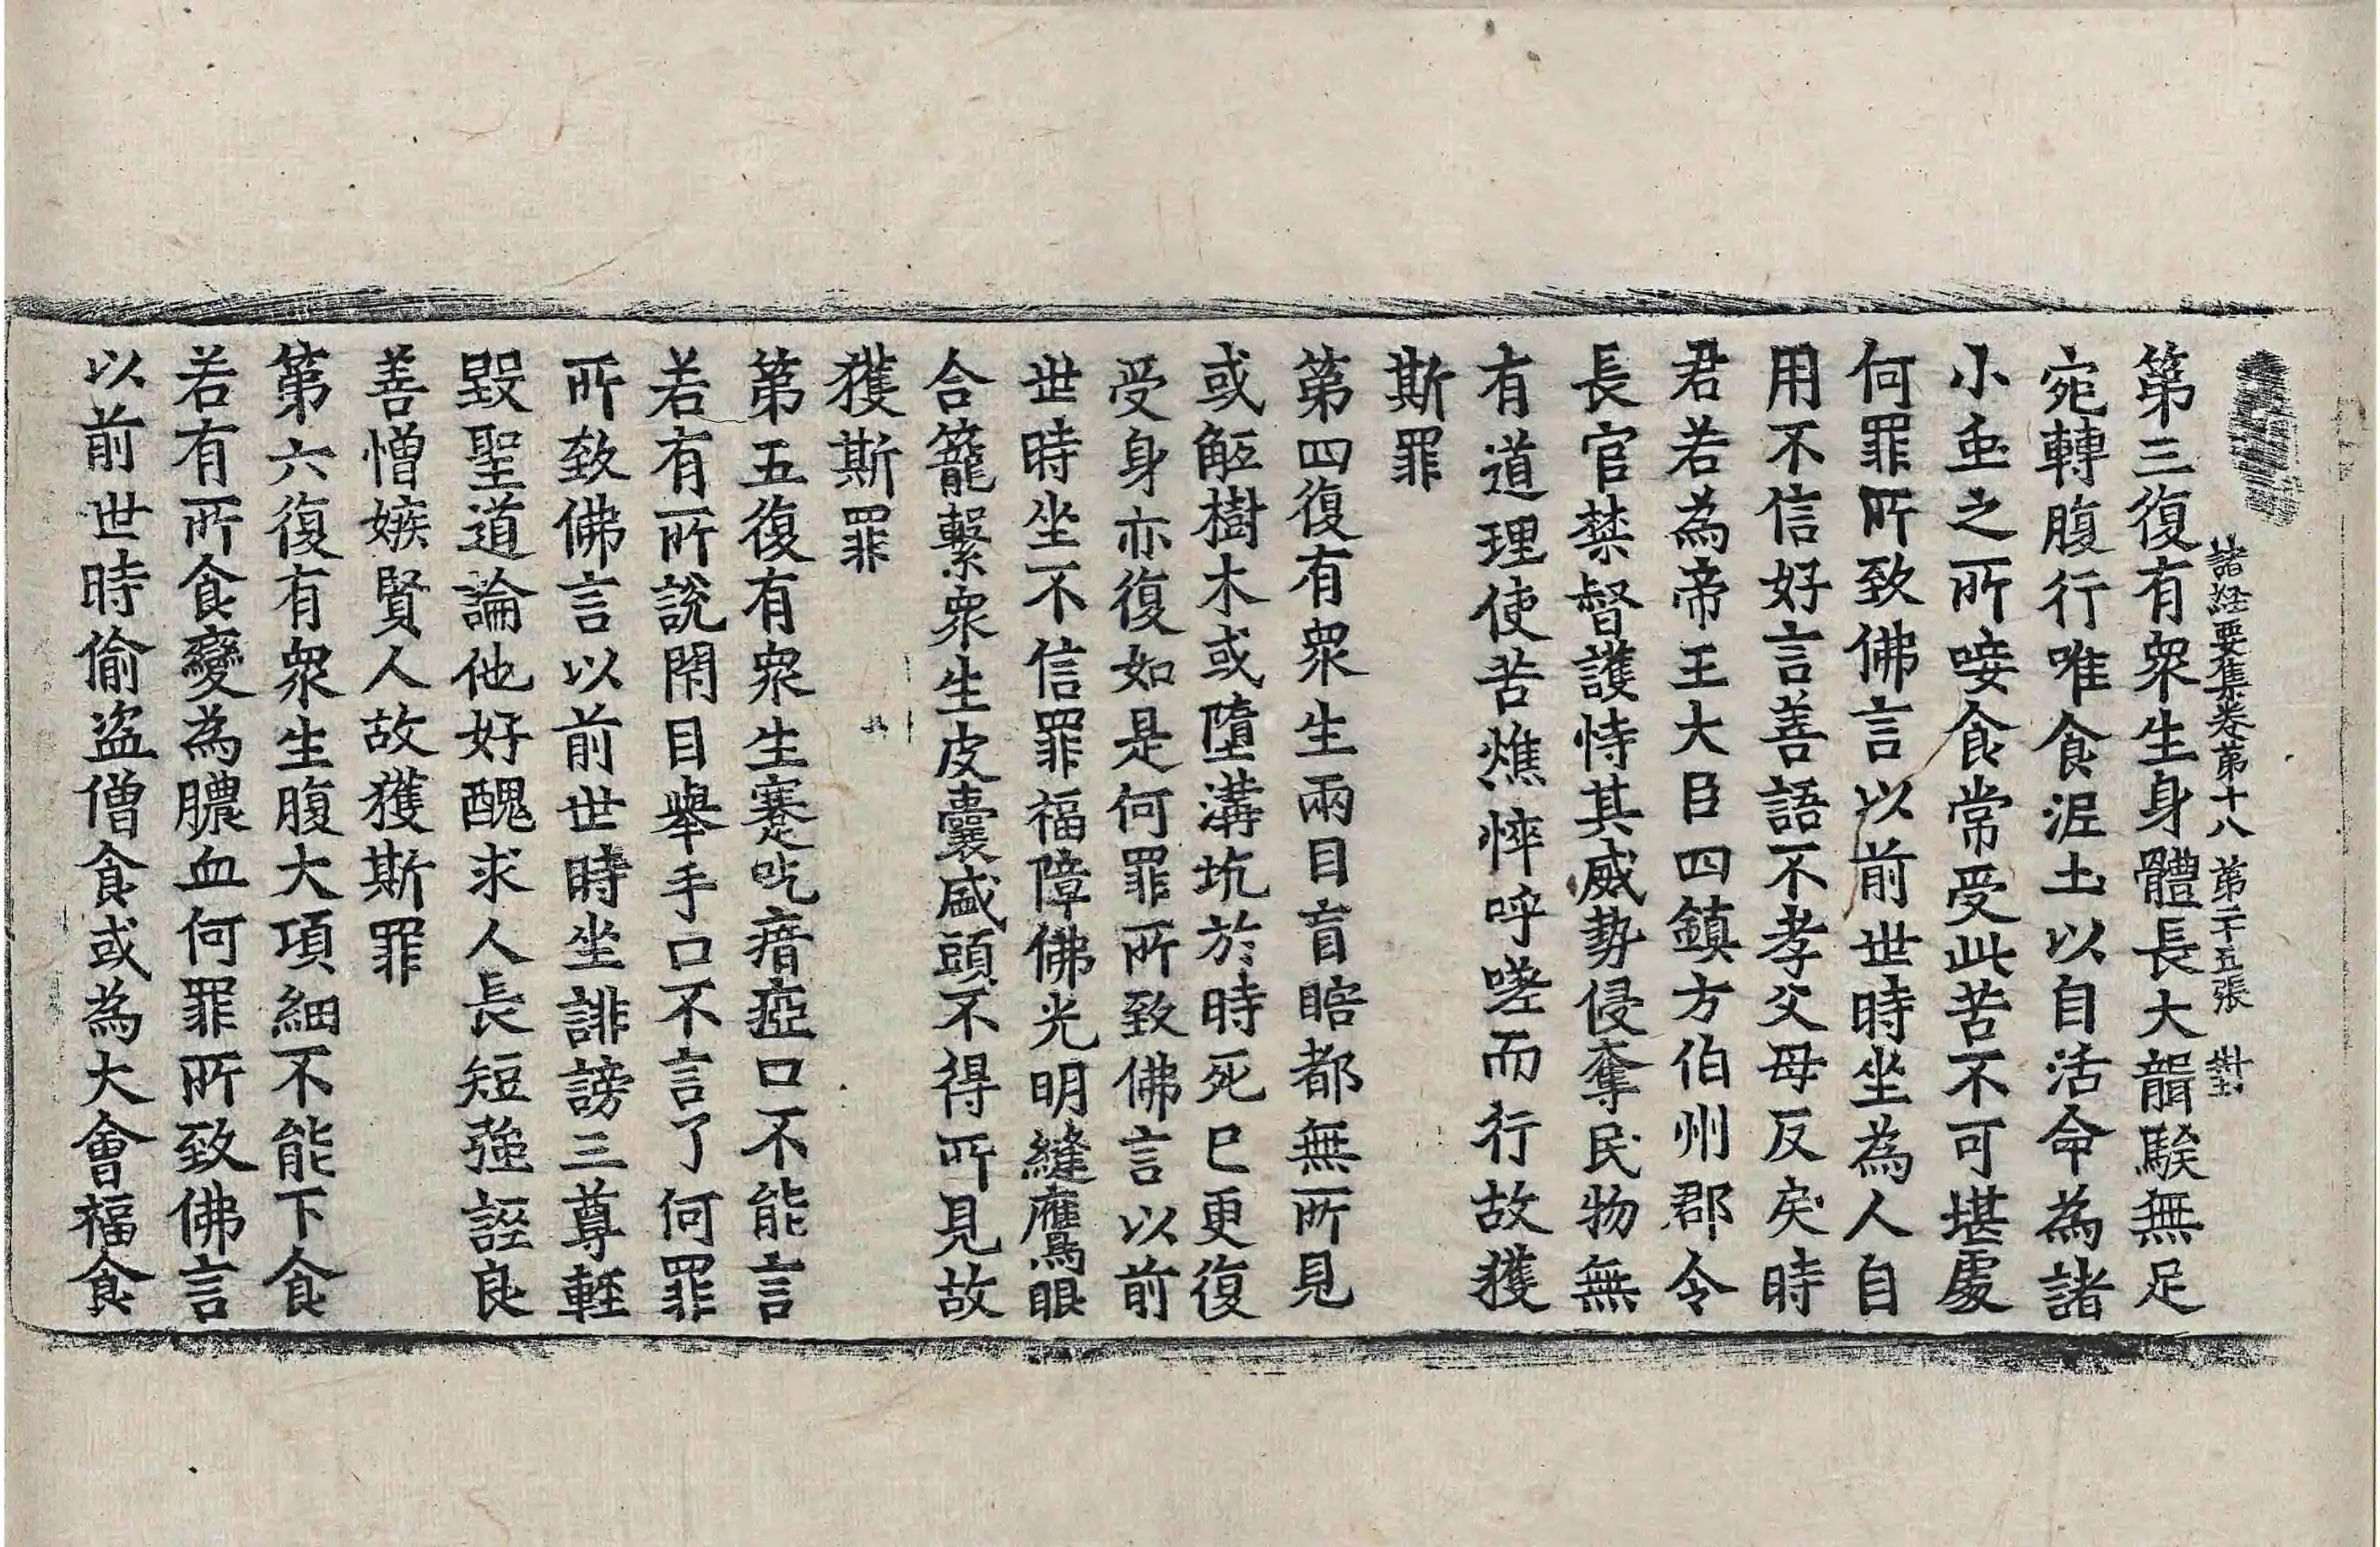 諸経要集卷第十八 第二十五張 對
第三復有衆生身體長大聾騃無足
宛轉腹行唯食泥土以自活命為諸
小䖝之所唼食常受此苦不可堪處
何罪所致佛言以前世時坐為人自
用不信好言善語不孝父母反戾時
君若為帝王大臣四鎮方伯州郡令
長官禁督護恃其威勢侵奪民物無
有道理使苦憔悴呼嗟而行故獲
斯罪
第四復有衆生兩目盲瞎都無所見
或觝樹木或墮溝坑於時死已更復
受身亦復如是何罪所致佛言以前
世時坐不信罪福障佛光明縫鷹眼
合籠繫衆生皮囊盛頭不得所見故
獲斯罪
第五復有衆生蹇吃瘖瘂口不能言
若有所說閇目舉手口不言了何罪
所致佛言以前世時坐誹謗三尊輕
毀聖道論他好醜求人長短強誣良
善憎嫉賢人故獲斯罪
第六復有衆生腹大項細不能下食
若有所食變為膿血何罪所致佛言
以前世時偷盜僧食或為大會福食